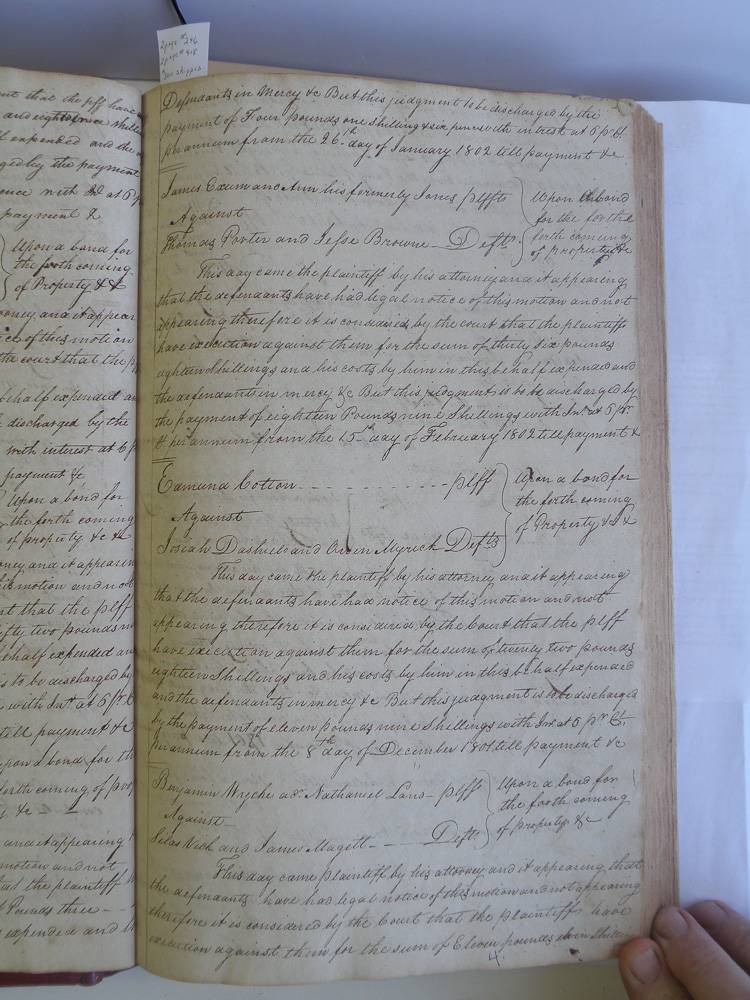 2 page # 246
2 page # 418
ent that the plff have
and eighteen shillin
t expended and the
ged by the payment
ence with Int at 6 p
payment &
Upon a bond for
the forth coming
of Property &c &
orney and it appear
ice of this motion
the court that the p
behalf expended an
discharged by the
with interest at 6 p
payment &c
Upon a bond for
the forth coming
of property &c &c
orney and it appearin
his motion and not
rt that the plff
fifty two pounds
behalf expended an
is to be discharged by
with Int at 6 pr C
till payment &c
upon a bond for th
forth coming of prop
&c
and it appearing
motion and not
that the plaintiff
Pounds three
expended and
Defendants in Mercy &c But this judgment to be discharged by the
payment of Four pounds one shilling & six pence with interest at 6 pr Ct.
per annum from the 26th day of January 1802 till payment &c
James Exum and Ann his formerly Jones plffs
Upon a bond
for the for the
forth coming
of property &c
Against
Thomas Porter and Jesse Browne Defts
This day came the plaintiff by his attorney and it appearing
that the defendants have had legal notice of this motion and not
appearing therefore it is considered by the court that the plaintiffs
have execution against them for the sum of thirty six pounds
eighteen shillings and his costs by him in this behalf expended and
the defendants in mercy &c But this judgment is to be discharged by
the payment of eighteen Pounds nine Shillings with Int at 6 pr.
Ct per annum from the 15th day of February 1802 till payment &
Edmund Cotton - - - - - - - - - - plff
Upon a bond for
the forth coming
of Property &c &
Against
Josiah Dashield and Owen Myrick Defts
This day came the plaintiff by his attorney and it appearing
that the defendants have had notice of this motion and not
appearing therefore it is considered by the Court that the plff
have execution against them for the sum of twenty two pounds
eighteen Shillings and his costs by him in this behalf expended
and the defendants in mercy &c But this judgment is to be discharged
by the payment of eleven pounds nine Shillings with Int at 6 pr Ct.
per annum from the 8th day of December 1801 till payment &c
Benjamin Wyche Nathaniel plffs
Upon a bond for
the forth coming
of property &c
Against
Silas and James Magett Defts
This day came plaintiff by his attorney and it appearing that
the defendants have had legal notice of this motion and not appearing
therefore it is considered by the Court that the plaintiffs have
execution against them for the sum of Eleven pounds